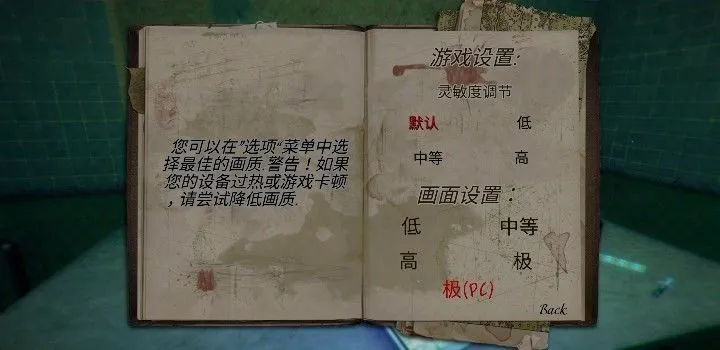 您可以在"选项"菜单中选
择最佳的画质.警告！如果
您的设备过热或游戏卡顿
，请尝试降低画质.
游戏设置:
灵敏度调节
默认 低
中等 高
画面设置：
低 中等
高 极
极(PC)
Back